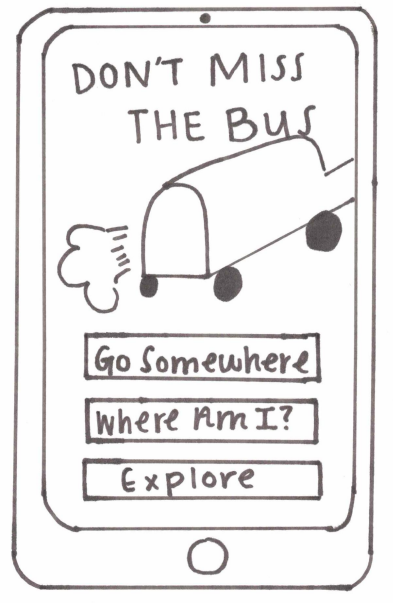 DON'T MISS
THE BUS
Go Somewhere
Where Am I?
Explore